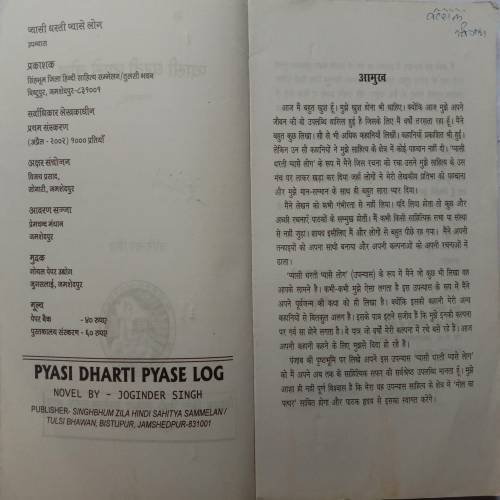 प्यासी धरती प्यासे लोग
उपन्यास
प्रकाशक
सिंहभूम जिला हिन्दी साहित्य सम्मेलन/तुलसी भवन
बिष्टुपुर, जमशेदपुर-८३१००१
सर्वाधिकार लेखकाधीन
प्रथम संस्करण
(अप्रैल - २००२) १००० प्रतियाँ
अक्षर संयोजन
विजय प्रसाद,
सोनारी, जमशेदपुर
आवरण सज्जा
प्रेमचन्द मंधान
जमशेदपुर
मुद्रक
गोयल पेपर उद्योग
जुगसलाई, जमशेदपुर
मूल्य
पेपर बैक - ४० रुपए
पुस्तकालय संस्करण - ६० रुपए
PYASI DHARTI PYASE LOG
NOVEL BY - JOGINDER SINGH
PUBLISHER- SINGHBHUM ZILA HINDI SAHITYA SAMMELAN /
TULSI BHAWAN, BISTUPUR, JAMSHEDPUR-831001
आमुख
आज मैं बहुत खुश हूँ। मुझे खुश होना भी चाहिए। क्योंकि आज मुझे अपने
जीवन की वो उपलब्धि हासिल हुई है जिसके लिए मैं वर्षों तरसता रहा हूँ। मैंने
बहुत कुछ लिखा। सौ से भी अधिक कहानियाँ लिखीं। कहानियाँ प्रकाशित भी हुईं।
लेकिन उन सौ कहानियों ने मुझे साहित्य के क्षेत्र में कोई पहचान नहीं दी। 'प्यासी
धरती प्यासे लोग' के रूप में मैंने जिस रचना की रचा उसने मुझे साहित्य के उस
मंच पर लाकर खड़ा कर दिया जहाँ लोगों ने मेरी लेखकीय प्रतिभा को पहचाना
और मुझे मान-सम्मान के साथ ही बहुत सारा प्यार दिया।
मैंने लेखन को कभी गंभीरता से नहीं लिया। यदि लिया होता तो कुछ और
अच्छी रचनाएँ पाठकों के सम्मुख होतीं। मैं कभी किसी साहित्यिक सभा या संस्था
से नहीं जुड़ा। शायद इसीलिए मैं और लोगों से बहुत पीछे रह गया। मैंने अपनी
तन्हाइयों को अपना साथी बनाया और अपनी कल्पनाओं को अपनी रचनाओं में
ढाला।
'प्यासी धरती प्यासे लोग' (उपन्यास) के रूप में मैंने जो कुछ भी लिखा वह
आपके सामने है। कभी-कभी मुझे ऐसा लगता है इस उपन्यास के रूप में मैंने
अपने पूर्वजन्म की कथा को ही लिखा है। क्योंकि इसकी कहानी मेरी अन्य
कहानियों से बिलकुल अलग है। इसके पात्र इतने सजीव हैं कि मुझे इनकी कल्पना
पर गर्व सा होने लगता है। ये पात्र वर्षों मेरी कल्पना में रचे बसे रहे हैं। आज
अपनी कहानी कहने के लिए मुझसे विदा हो रहे हैं।
पंजाब की पृष्ठभूमि पर लिखे अपने इस उपन्यास 'प्यासी धरती प्यासे लोग'
को मैं अपने अब तक के साहित्यिक सफर की सर्वश्रेष्ठ उपलब्धि मानता हूँ। मुझे
आशा ही नहीं पूर्ण विश्वास है कि मेरा यह उपन्यास साहित्य के क्षेत्र में 'मील का
पत्थर' साबित होगा और पाठक हृदय से इसका स्वागत करेंगे।